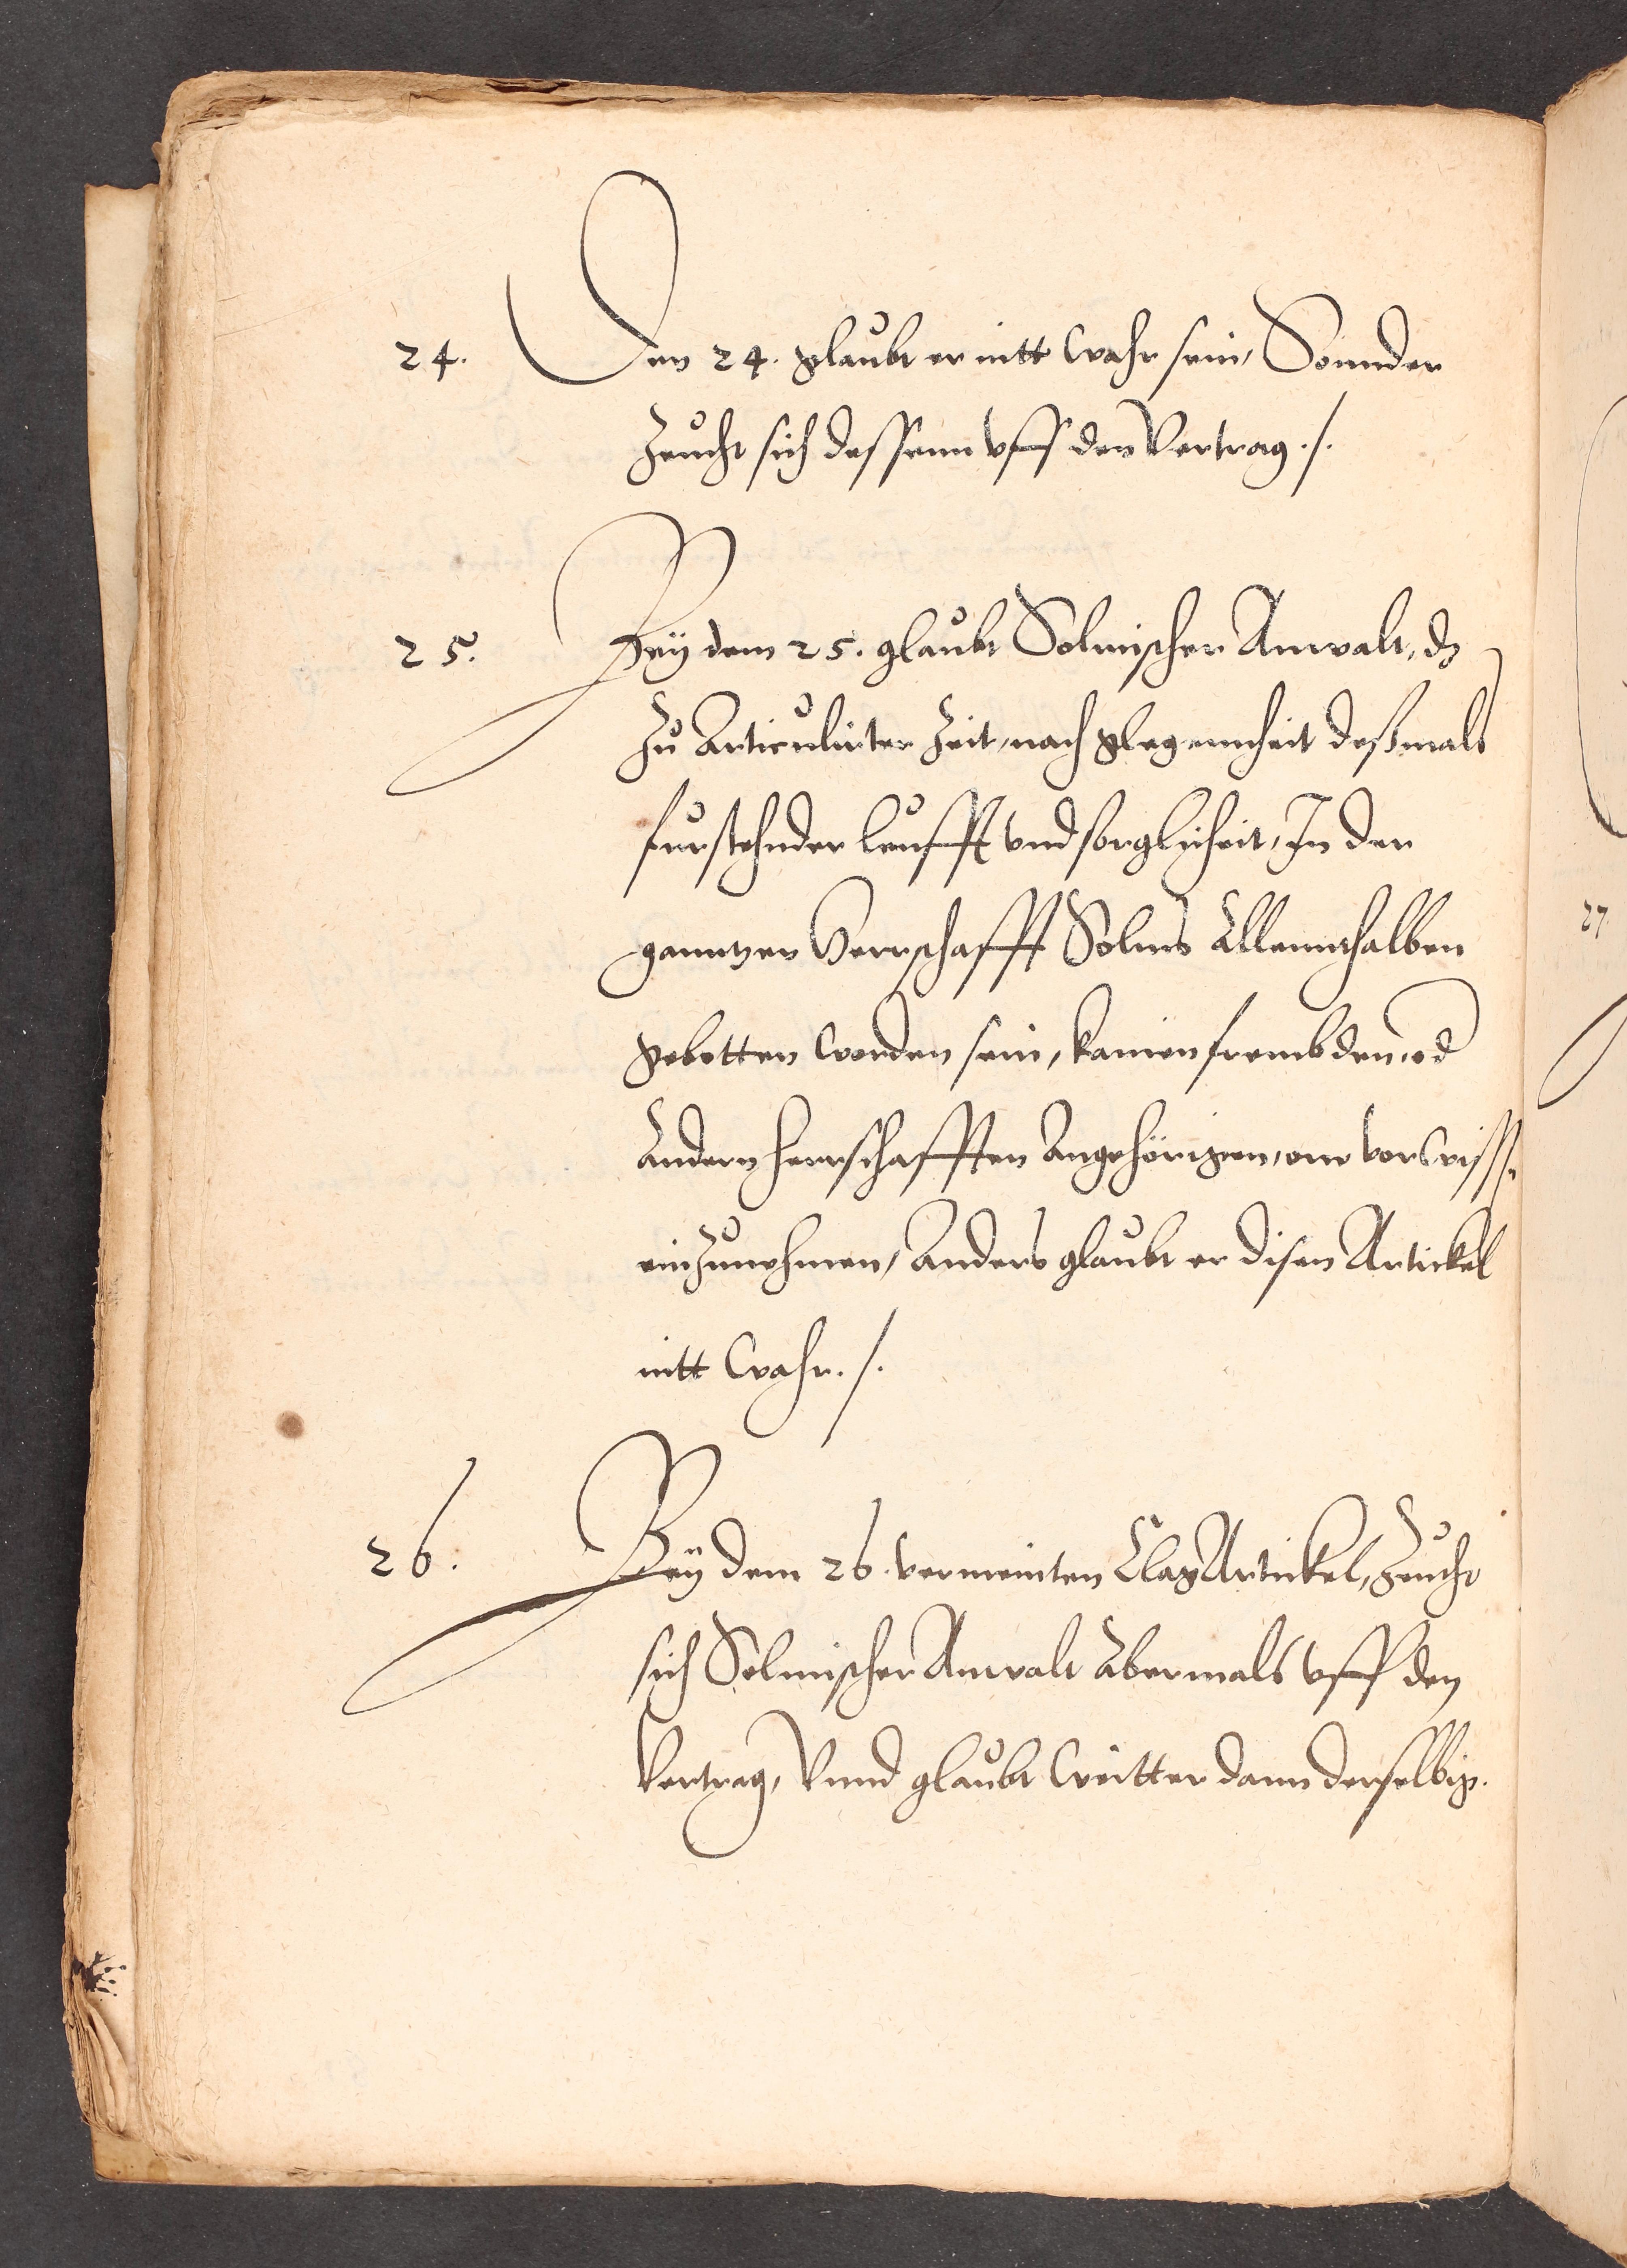 24. Den 24. glaubt er nitt wahr sein, Sonnder
Zeucht sich dessenn vff den Vertrag ./.
25. Bey dem 25. glaubt Solmischer Anwalt, dz
Zu Articulirter Zeit, nach glegennheit deßmals
furstehnder leufft vnd sorglicheit, In der
ganntzen Herrschafft Solms Allennthalben
gebotten worden sein, kainen frembden, od
Andern herrschafften Angehörigen, one vorwiss.
einZunehmen, Anders glaubt er disen Artickel
nitt wahr ./.
26. Bey dem 26. vermeinten ClagArtickel, Zeucht
sich Solmischer Anwalt Abermals vff den
Vertrag, Vnnd glaubt weitter dann derselbig.
27.